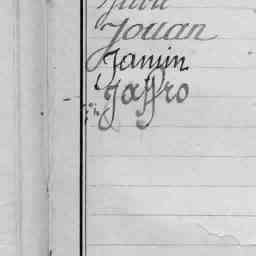 Jouan
Jamin
Jaffro